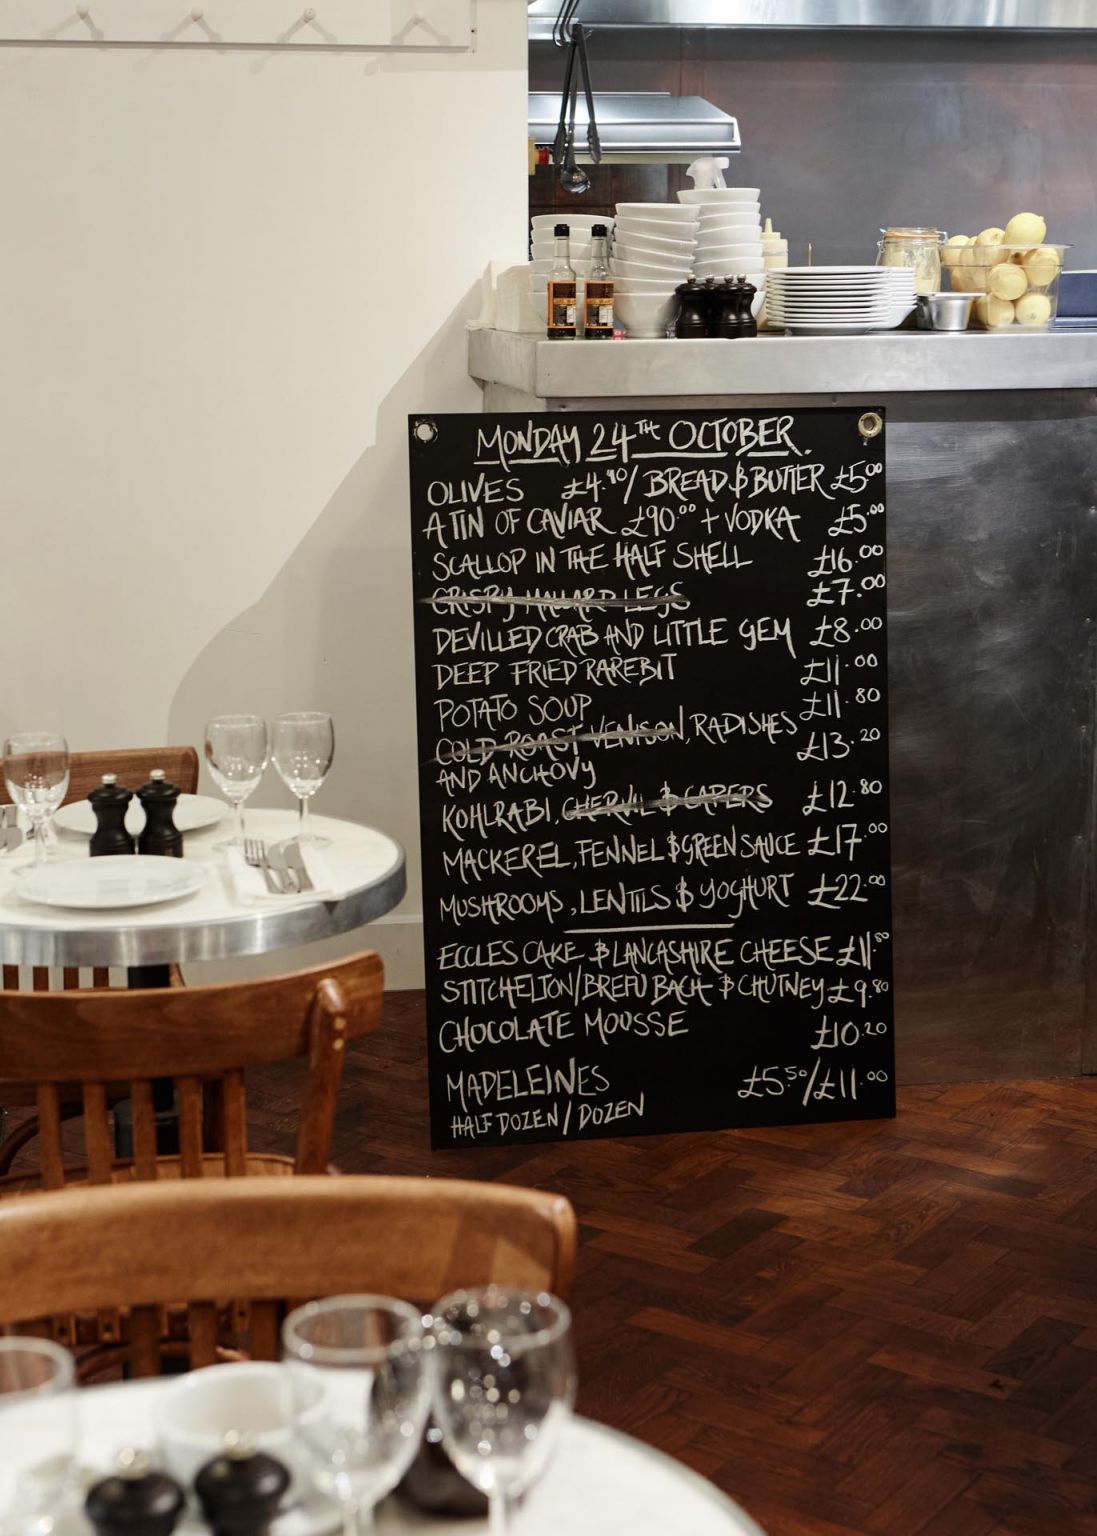 MONDAY 24TH OCTOBER.
OLIVES £4.90/ BREAD & BUTTER £5.00
A TIN OF CAVIAR £90.00 + VODKA £5.00
SCALLOP IN THE HALF SHELL £16.00
CRISPY MALLARD LEGS £7.00
DEVILLED CRAB AND LITTLE GEM £8.00
DEEP FRIED RAREBIT £11.00
POTATO SOUP £11.80
COLD ROAST VENISON, RADISHES £13.20
AND ANCHOVY
KOHLRABI, CHERVIL & CAPERS £12.80
MACKEREL, FENNEL & GREEN SAUCE £17.00
MUSHROOMS, LENTILS & YOGHURT £22.00
ECCLES CAKE & LANCASHIRE CHEESE £11.80
STITCHELTON/BREFU BACH & CHUTNEY £9.80
CHOCOLATE MOUSSE £10.20
MADELEINES £5.50/£11.00
HALF DOZEN / DOZEN